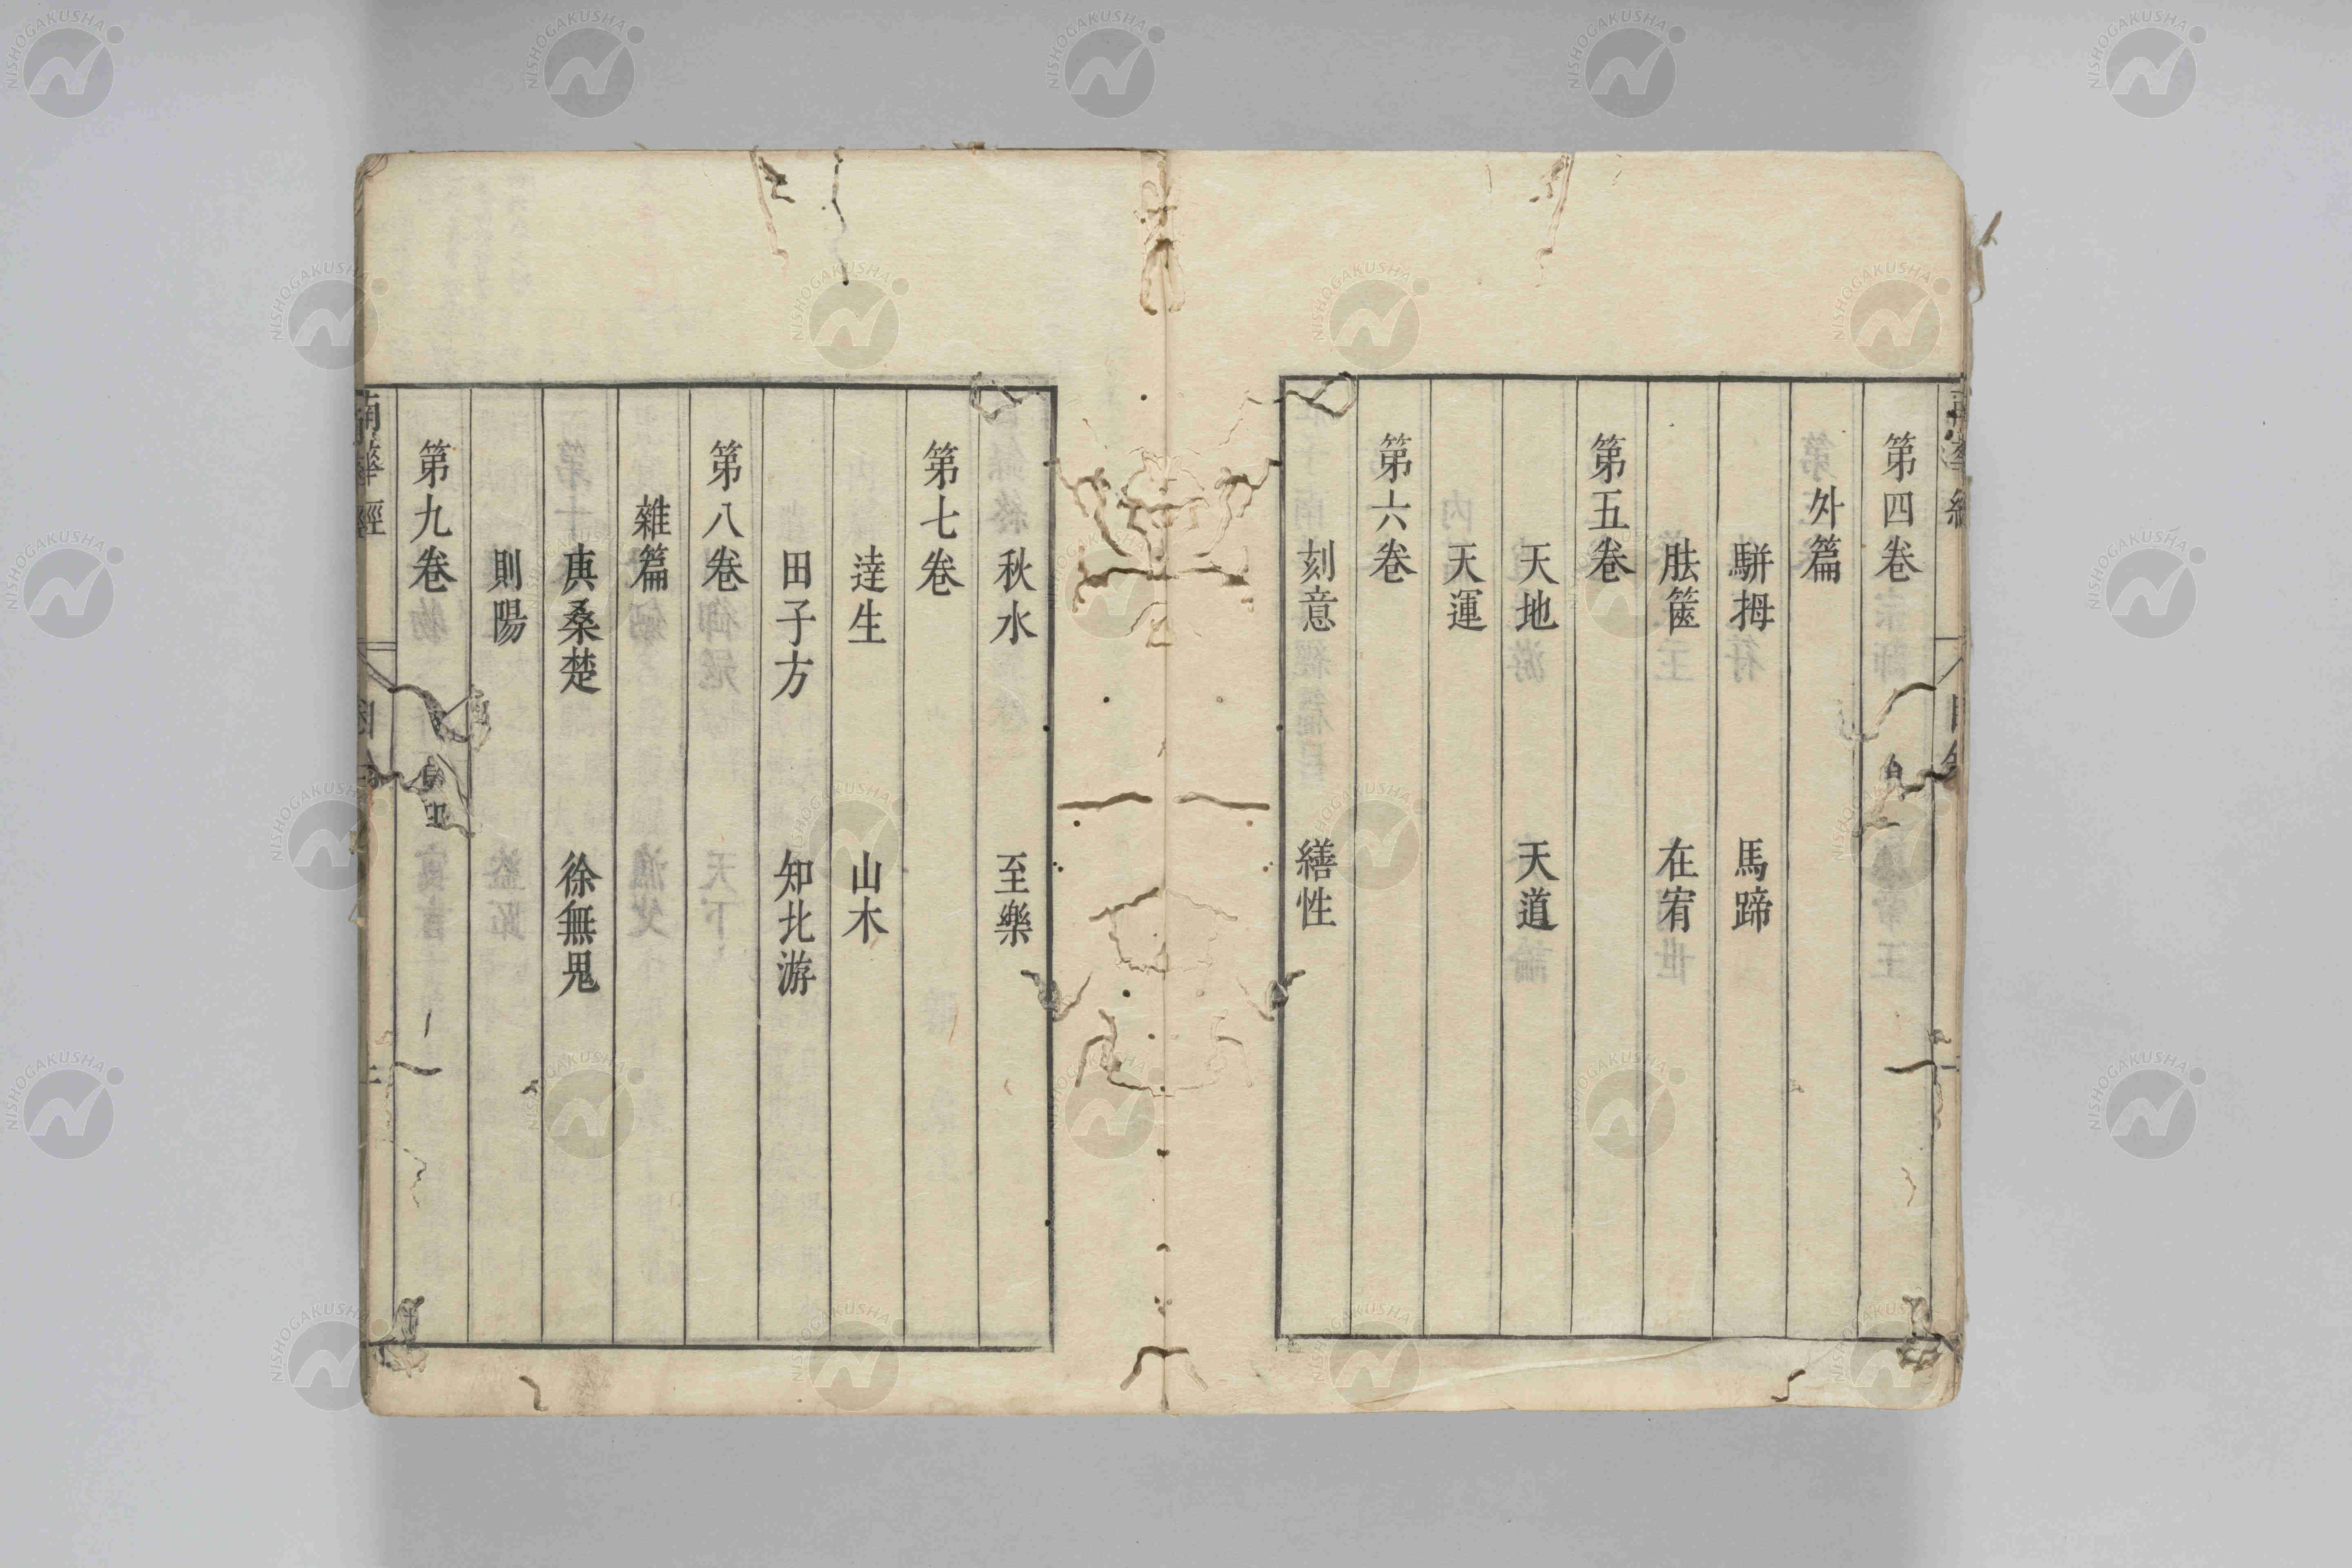 第四卷
外篇
駢拇 馬蹄
胠篋 在宥
第五卷
天地 天道
天運
第六卷
刻意 繕性
秋水 至樂
第七卷
達生 山木
田子方 知北游
第八卷
雜篇
庚桑楚 徐無鬼
則陽
第九卷
南華經
NISHOGAKUSHA